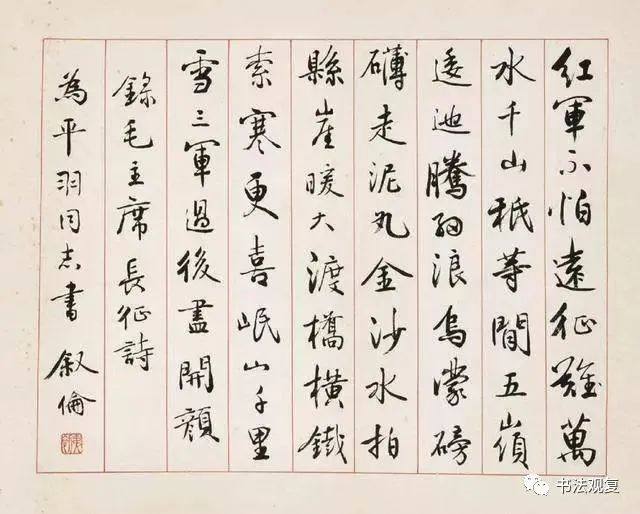 紅軍不怕遠征難萬
水千山秖等閒五嶺
逶迤騰細浪烏濛磅
礴走泥丸金沙水拍
縣崖暖大渡橋橫鐵
索寒更喜岷山千里
雪三軍過後盡開顏
錄毛主席長征詩
為平羽同志書 叙倫
书法观复